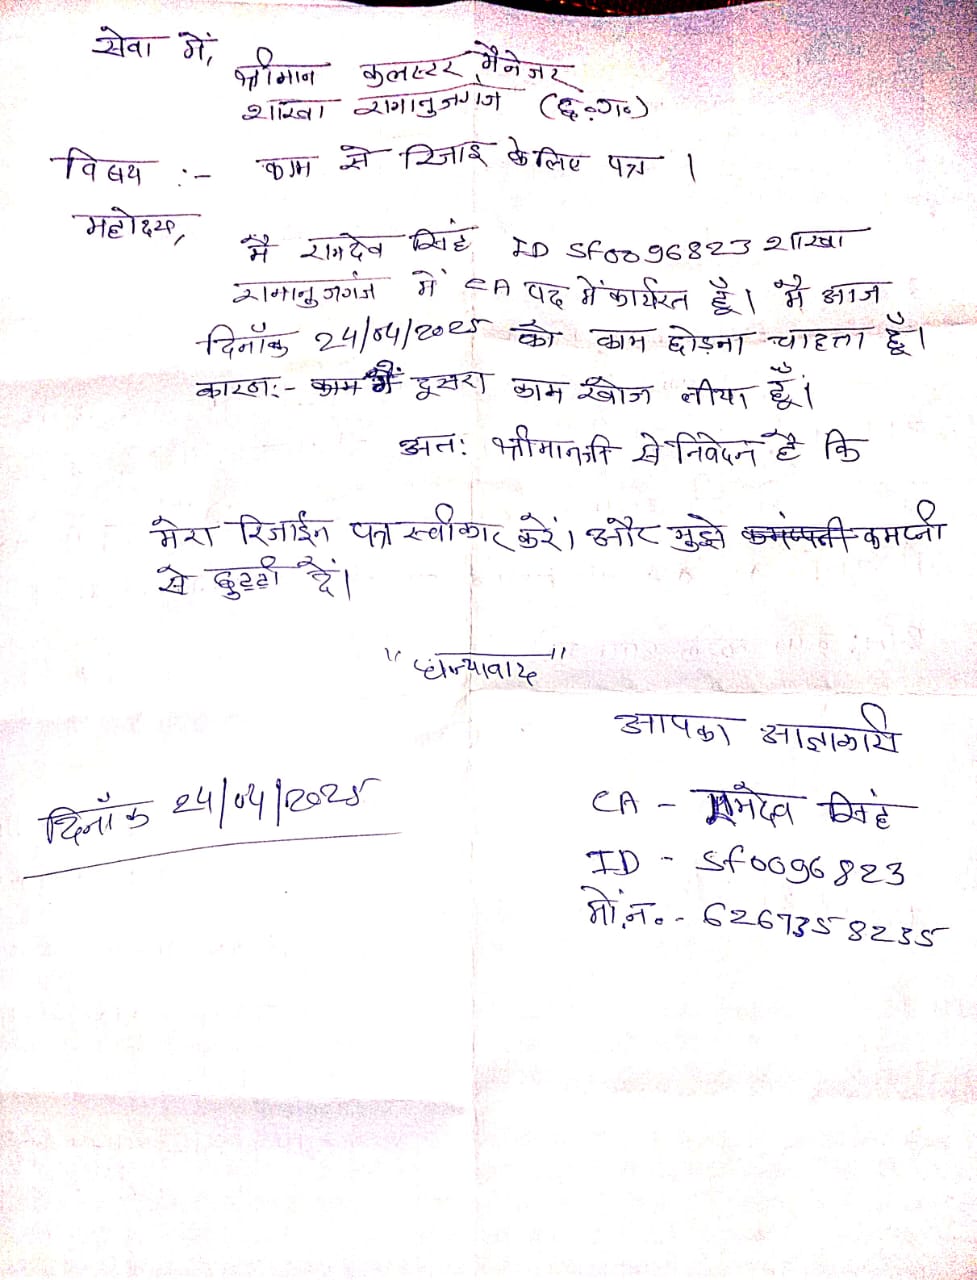 सेवा में,
श्रीमान कुलस्टर मैनेजर
शाखा रामानुजगंज (छ.ग.)
विषय :- काम से रिजाइ के लिए पत्र ।
महोदय,
मैं रामदेव सिंह ID Sf0096823 शाखा
रामानुजगंज में CA पद में कार्यरत हूँ। मैं आज
दिनाँक 24/04/2025 को काम छोड़ना चाहता हूँ।
कारण:- काम मैं दूसरा काम खोज लीया हूँ।
अतः श्रीमानजी से निवेदन है कि
मेरा रिजाईन पत्र स्वीकार करें। और मुझे कमप्नी
से छुट्टी दें।
"धन्यावाद"
आपका आज्ञाकारी
CA - रामदेव सिंह
दिनाँक 24/04/2025
ID - Sf0096823
मो.न. - 6267358235